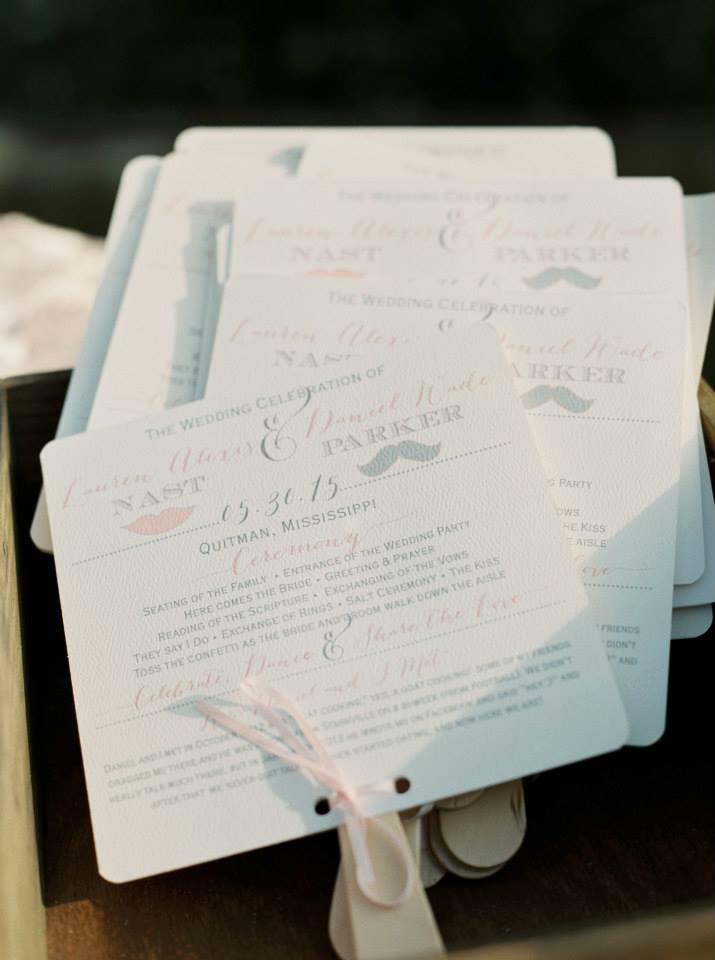 The Wedding Celebration of
Lauren Alexis & Daniel Wade
NAST PARKER
05.30.15
Quitman, Mississippi!
Ceremony
Seating of the Family • Entrance of the Wedding Party
Here comes the Bride • Greeting & Prayer
Reading of the Scripture • Exchanging of the Vows
They say I Do • Exchange of Rings • Salt Ceremony • The Kiss
Toss the confetti as the Bride and Groom walk down the aisle
Celebrate, Dance & Share the Love
Daniel and I Met
Daniel and I met in October at cooking? Yes, a goat cooking! Some of my friends
dragged me there and he was Starkville on a bi-week (from football). We didn't
really talk much there, but in he wrote me on Facebook and said "Hey :)" and
after that, we never quit talking started dating, and now here we are!
The Wedding Celebration of
Lauren Alex Daniel Wade
NAST PARKER
Party
Vows
The Kiss
Aisle
Love
friends
didn't
and
The Wedding Celebration of
Lauren Alexis & Daniel Wade
NAST PARKER